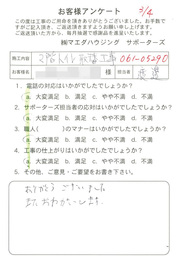 お客様アンケート
この度は工事のご用命を頂きありがとうございました。お手数で
すがご記入頂き、ご返送頂きますようお願い申し上げます。
ご返送頂いた方から、毎月抽選で感謝品を進呈いたします。
㈱マエダハウジング サポーターズ
施工内容
061-05290
お客様名 様 担当者
1. 電話の対応はいかがでしたでしょうか?
a. 大変満足 b. 満足 c. やや不満 d. 不満
2. サポーターズ担当者の対応はいかがでしたでしょうか?
a. 大変満足 b. 満足 c. やや不満 d. 不満
3. 職人( )のマナーはいかがでしたでしょうか?
a. 大変満足 b. 満足 c. やや不満 d. 不満
4. 工事の仕上がりはいかがでしたでしょうか?
a. 大変満足 b. 満足 c. やや不満 d. 不満
5. その他、ご意見・ご要望をお聞かせ下さい。
ありがとうございました